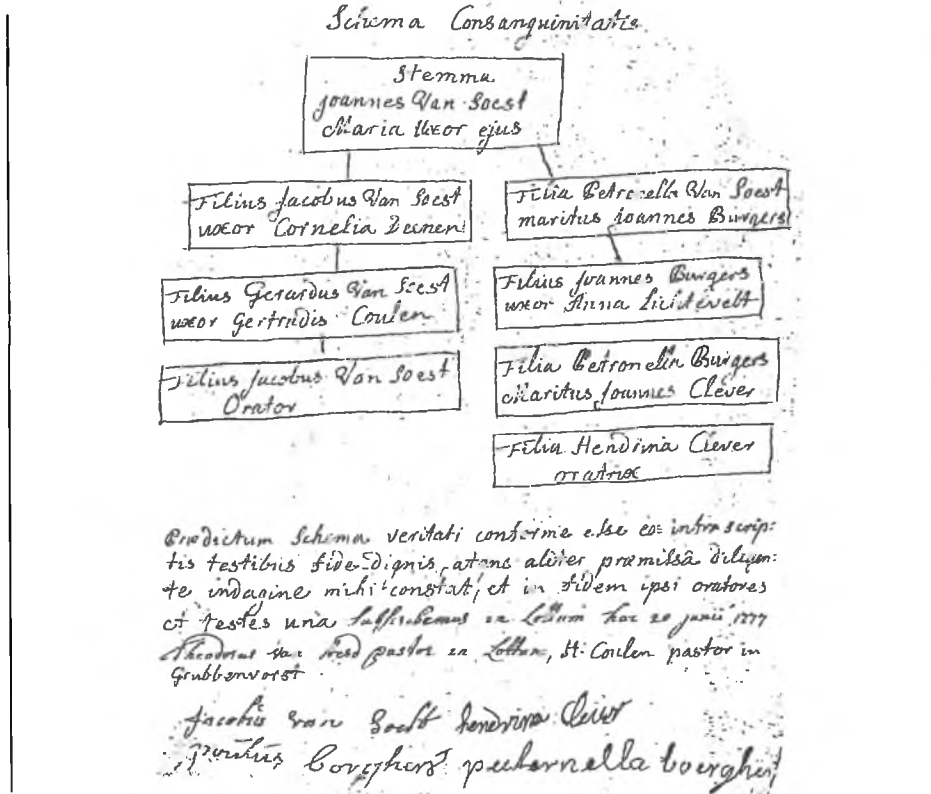 Schema Consanguinitatis
Stemma
Joannes Van Soest
Maria Uxor ejus
Filius Jacobus Van Soest
uxor Cornelia
Filia Petronella Van Soest
maritus Joannes Burgers
Filius Gerardus Van Soest
uxor Gertrudis Coulen
Filius Joannes Burgers
uxor Anna
Filius Jacobus Van Soest
Orator
Filia Petronella Burgers
Maritus Joannes Clever
Filia Hendrina Clever
oratrix
Prædictum Schema veritati conforme esse ex infra scrip:
tis testibus fide dignis, atque aliter præmissâ diligen:
te indagine mihi constat, et in fidem ipsi oratores
et testes una subscribemus in Lottum hac 20 junii 1777
Theodorus pastor in Lottum, H: Coulen pastor in
Grubbenvorst
Jacobus van Soest hendrina Clever
borghers peternella boerghers